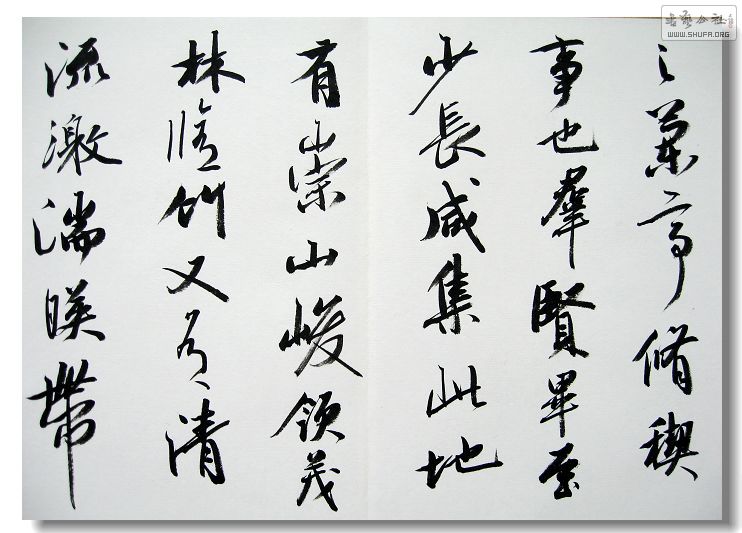 之蘭亭脩稧
事也羣賢畢至
少長咸集此地
有崇山峻領茂
林脩竹又有清
流激湍暎帶
書藝公社
WWW.SHUFA.ORG